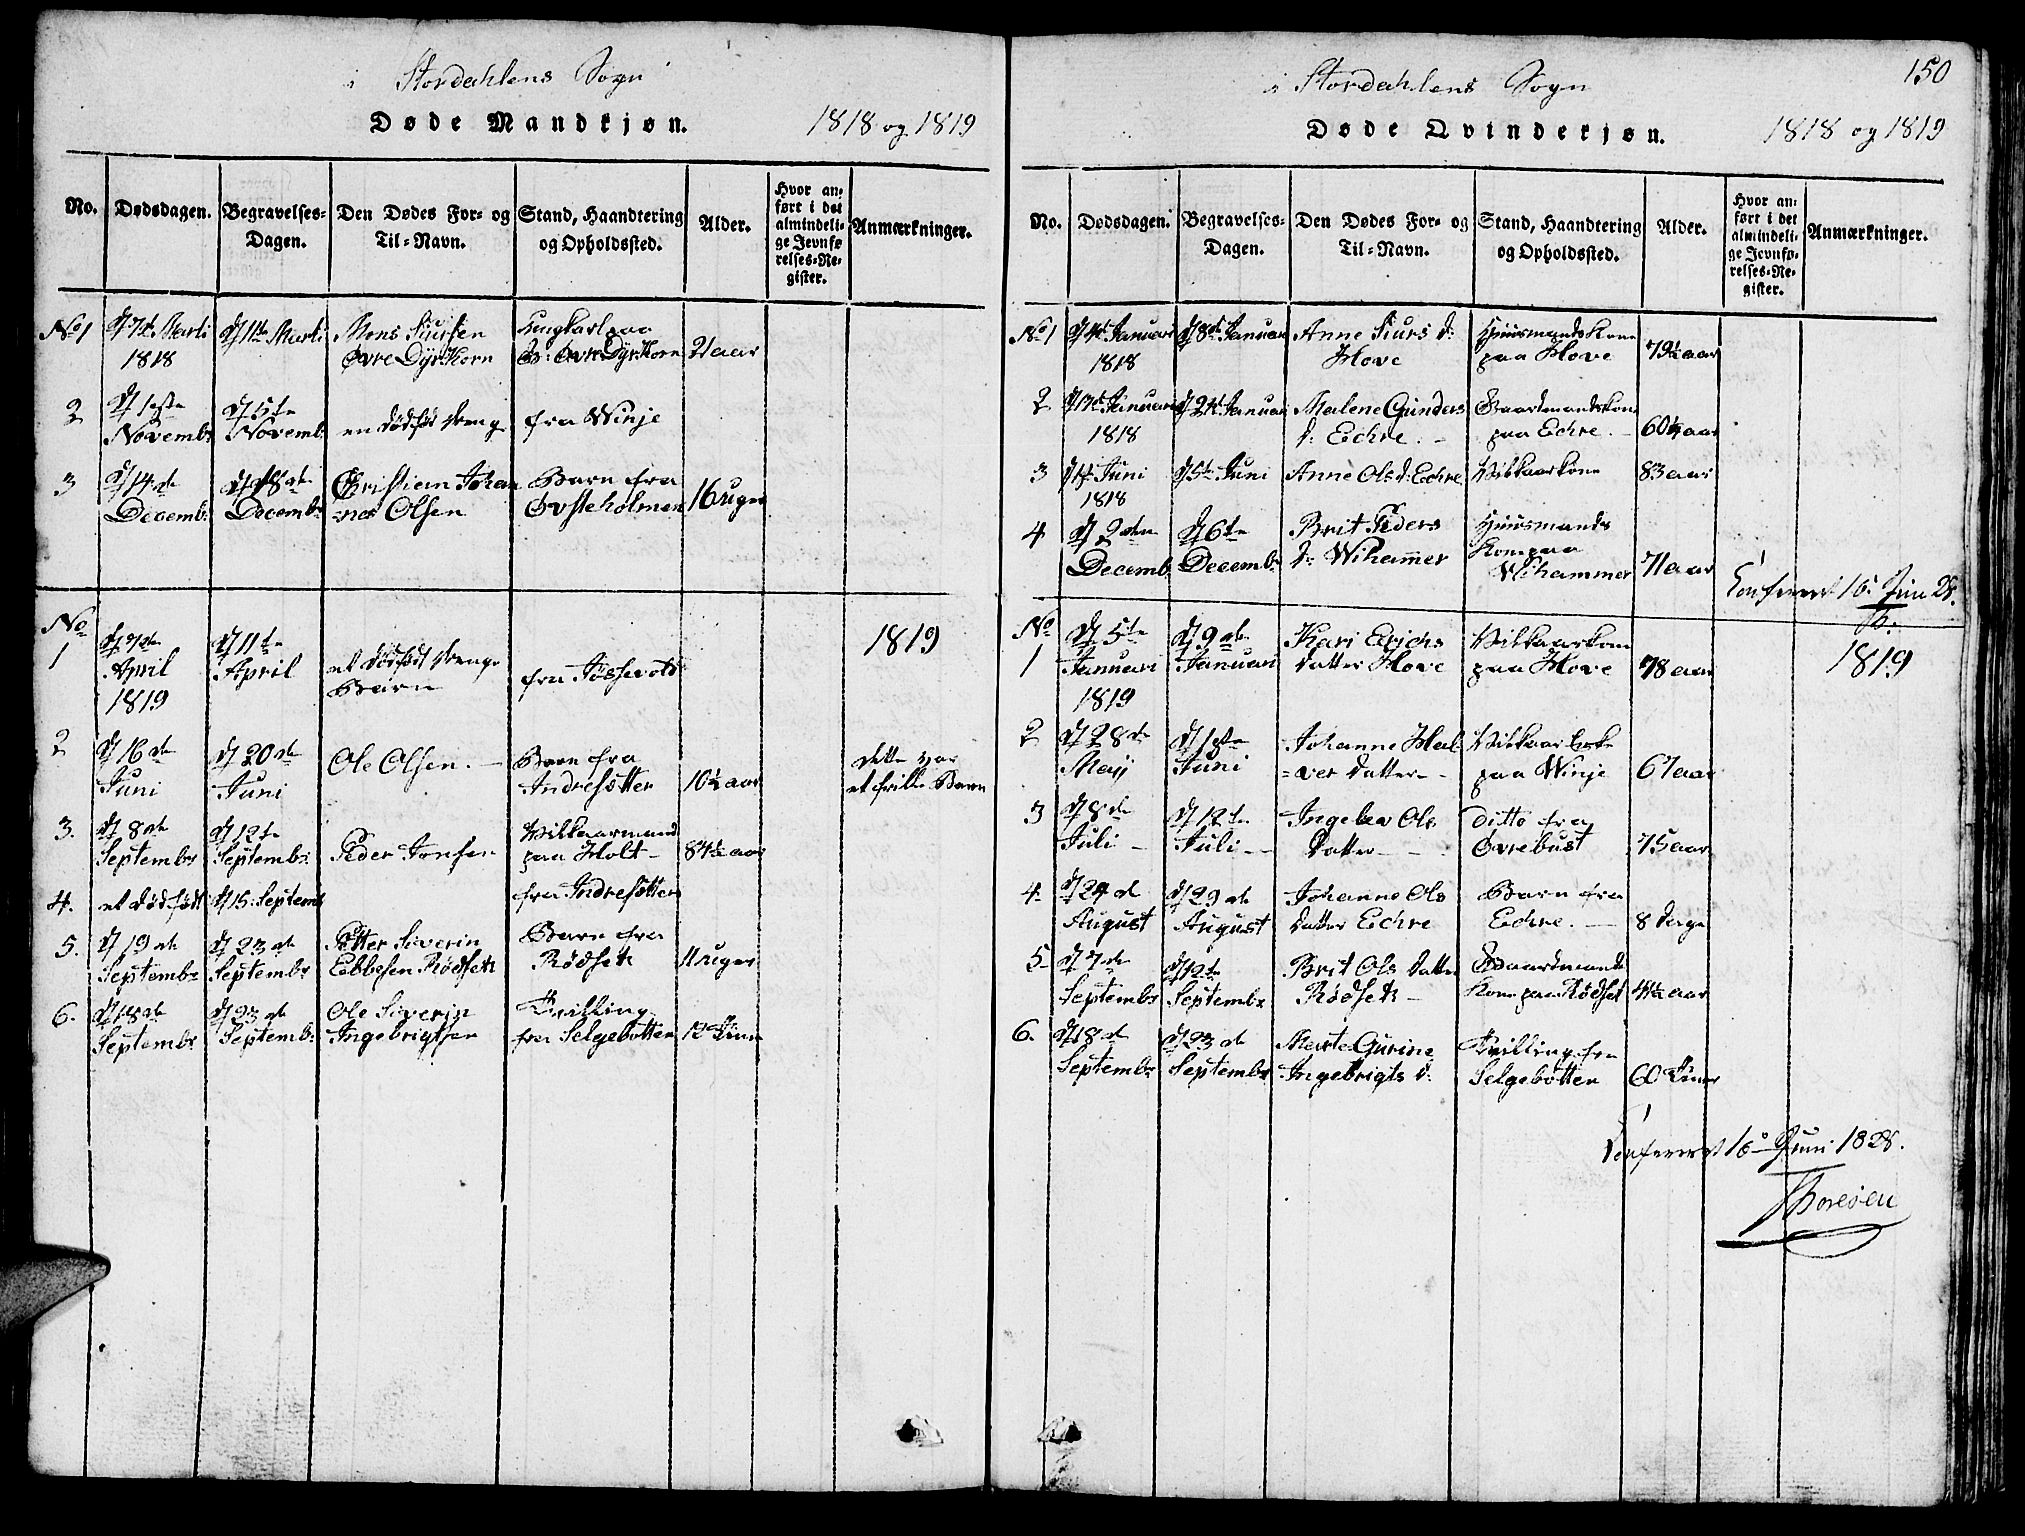 i Stordahlens Sogn
Døde Mandkjøn. 1818 og 1819
No. Dødsdagen. Begravelses-Dagen. Den Dødes For- og Til-Navn. Stand, Haandtering og Opholdssted. Alder. Hvor anført i det almindelige Jevnførelses-Register. Anmærkninger.
No 1 d 7de Marti 1818 d 11te Marti Mons Siursen Øvre Dyrkorn Ungkarl paa Øvre Dyrkorn 21 aar
2 d 1ste Novembr d 5te Novembr en dødfød Dreng fra Winje
3 d 14de Decembr d 18de Decembr Christian Johannes Olsen Barn fra Øvsteholmen 16 uger
1819
No 1 d 7de April 1819 d 11te April et dødfødt Drenge Barn fra
2 d 16de Juni d 20de Juni Ole Olsen. Barn fra Indresætter 10½ aar Dette var et Barn
3. d 8de Septembr d 12te Septembr Peder Jonsen Vilkaarmand paa Holt 84½ aar
4. et dødfødt d 15: Septemb fra Indresætter
5. d 19de Septembr d 23de Septembr Petter Siverin Ebbesen Rødseth Barn fra Rødseth 11 uger
6. d 18de Septembr d 23de Septembr Ole Siverin Ingebrigtsen Tvilling fra Selgebotten 12 Timer
150
i Stordahlens Sogn
Døde Qvindekjøn. 1818 og 1819
No. Dødsdagen. Begravelses-Dagen. Den Dødes For- og Til-Navn. Stand, Haandtering og Opholdssted. Alder. Hvor anført i det almindelige Jevnførelses-Register. Anmærkninger.
No 1 d 4de Januari 1818 d 8de Januari Anne Siurs d: Hove Huusmands Kone paa Hove 79½ aar
2 d 17de Januari 1818 d 21de Januari Malene Gunders d: Echre. Gaardmandskone paa Echre. 60½ aar
3 d 1ste Juni 1818 d 5te Juni Anne Ols d: Echre Vilkaarkone 83 aar
4 d 2den Decembr d 6te Decembr Brit Peders d: Wihammer Huusmands Kone paa Wihammer 71 aar
Confereret 16 Juni 28.
Th:
1819
No 1 d 5te Januari 1819 d 9de Januari Kari Erichs datter Hove Vilkaarkone paa Hove 78 aar
2 d 28de Maji d 1ste Juni Johanne Halver datter Vilkaar Enke paa Winje 67 aar
3 d 8de Juli d 12te Juli Ingebor Ols datter ditto fra Øvrebust 75 aar
4 d 24de August d 29de August Johanne Ols datter Echre Barn fra Echre. 8 dage
5 d 7de Septembr d 12te Septembr Brit Ols datter Rødseth Gaardmands Kone paa Rødset 41½ aar
6. d 18de Septembr d 23de Septembr Marte Gurine Ingebrigts d: Tvilling fra Selgebotten 60 Timer
Confereret 16 Juni 1828.
Thoresen